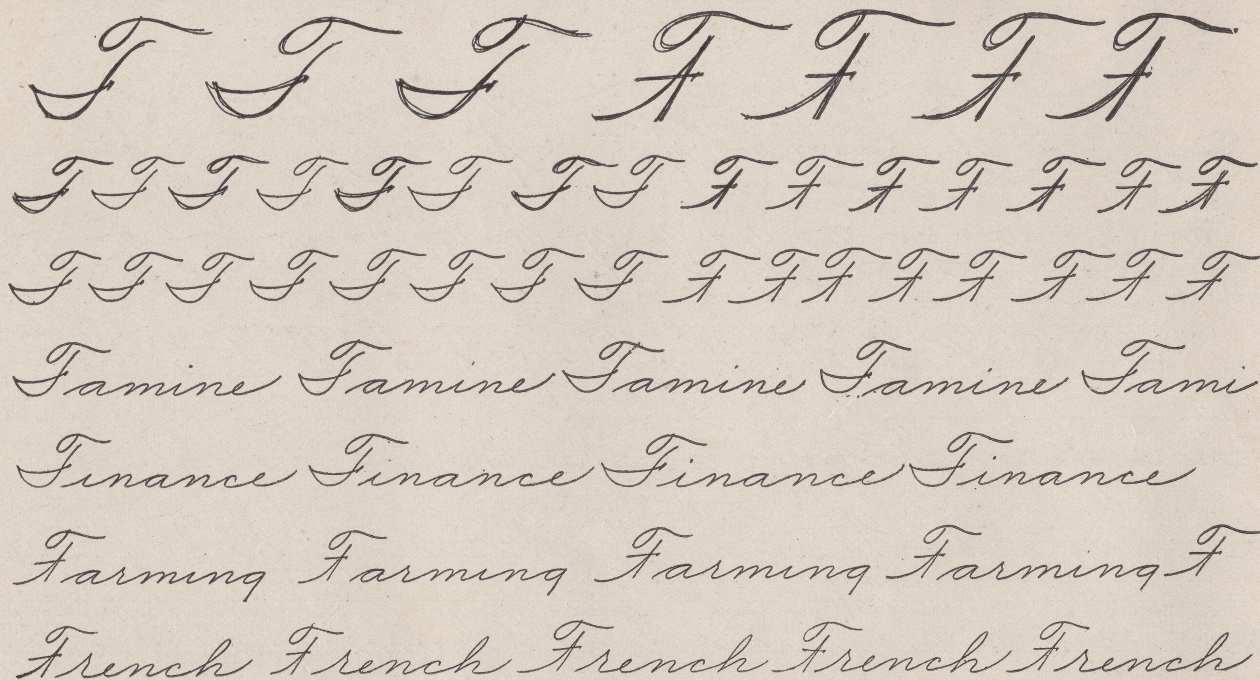 F F F F F F F
F F F F F F F F F F F F F F F
F F F F F F F F F F F F F F F F
Famine Famine Famine Famine Fami
Finance Finance Finance Finance
Farming Farming Farming Farming F
French French French French French